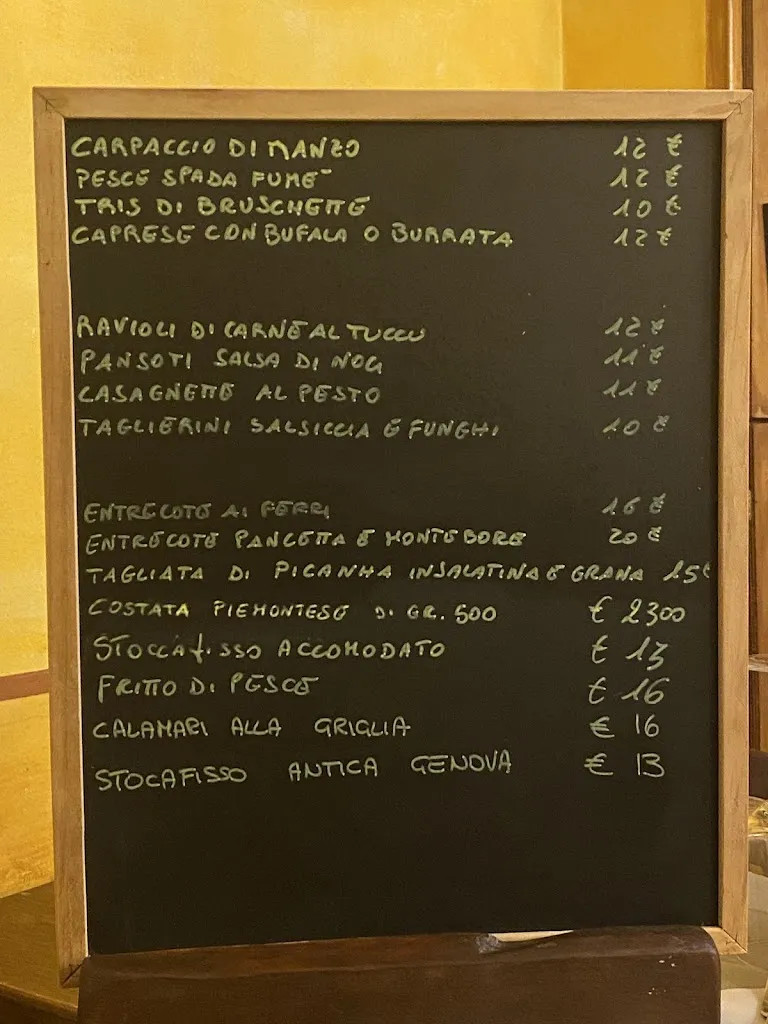 CARPACCIO DI MANZO 12 €
PESCE SPADA FUMÉ 12 €
TRIS DI BRUSCHETTE 10 €
CAPRESE CON BUFALA O BURRATA 12 €
RAVIOLI DI CARNE AL TUCCU 12 €
PANSOTI SALSA DI NOCI 11 €
CASAGNETTE AL PESTO 11 €
TAGLIERINI SALSICCIA E FUNGHI 10 €
ENTRECOTE AI FERRI 16 €
ENTRECOTE PANCETTA E MONTEBORE 20 €
TAGLIATA DI PICANHA INSALATINA E GRANA 15€
COSTATA PIEMONTESE DI GR. 500 € 2300
STOCCAFISSO ACCOMODATO € 13
FRITTO DI PESCE € 16
CALAMARI ALLA GRIGLIA € 16
STOCAFISSO ANTICA GENOVA € 13